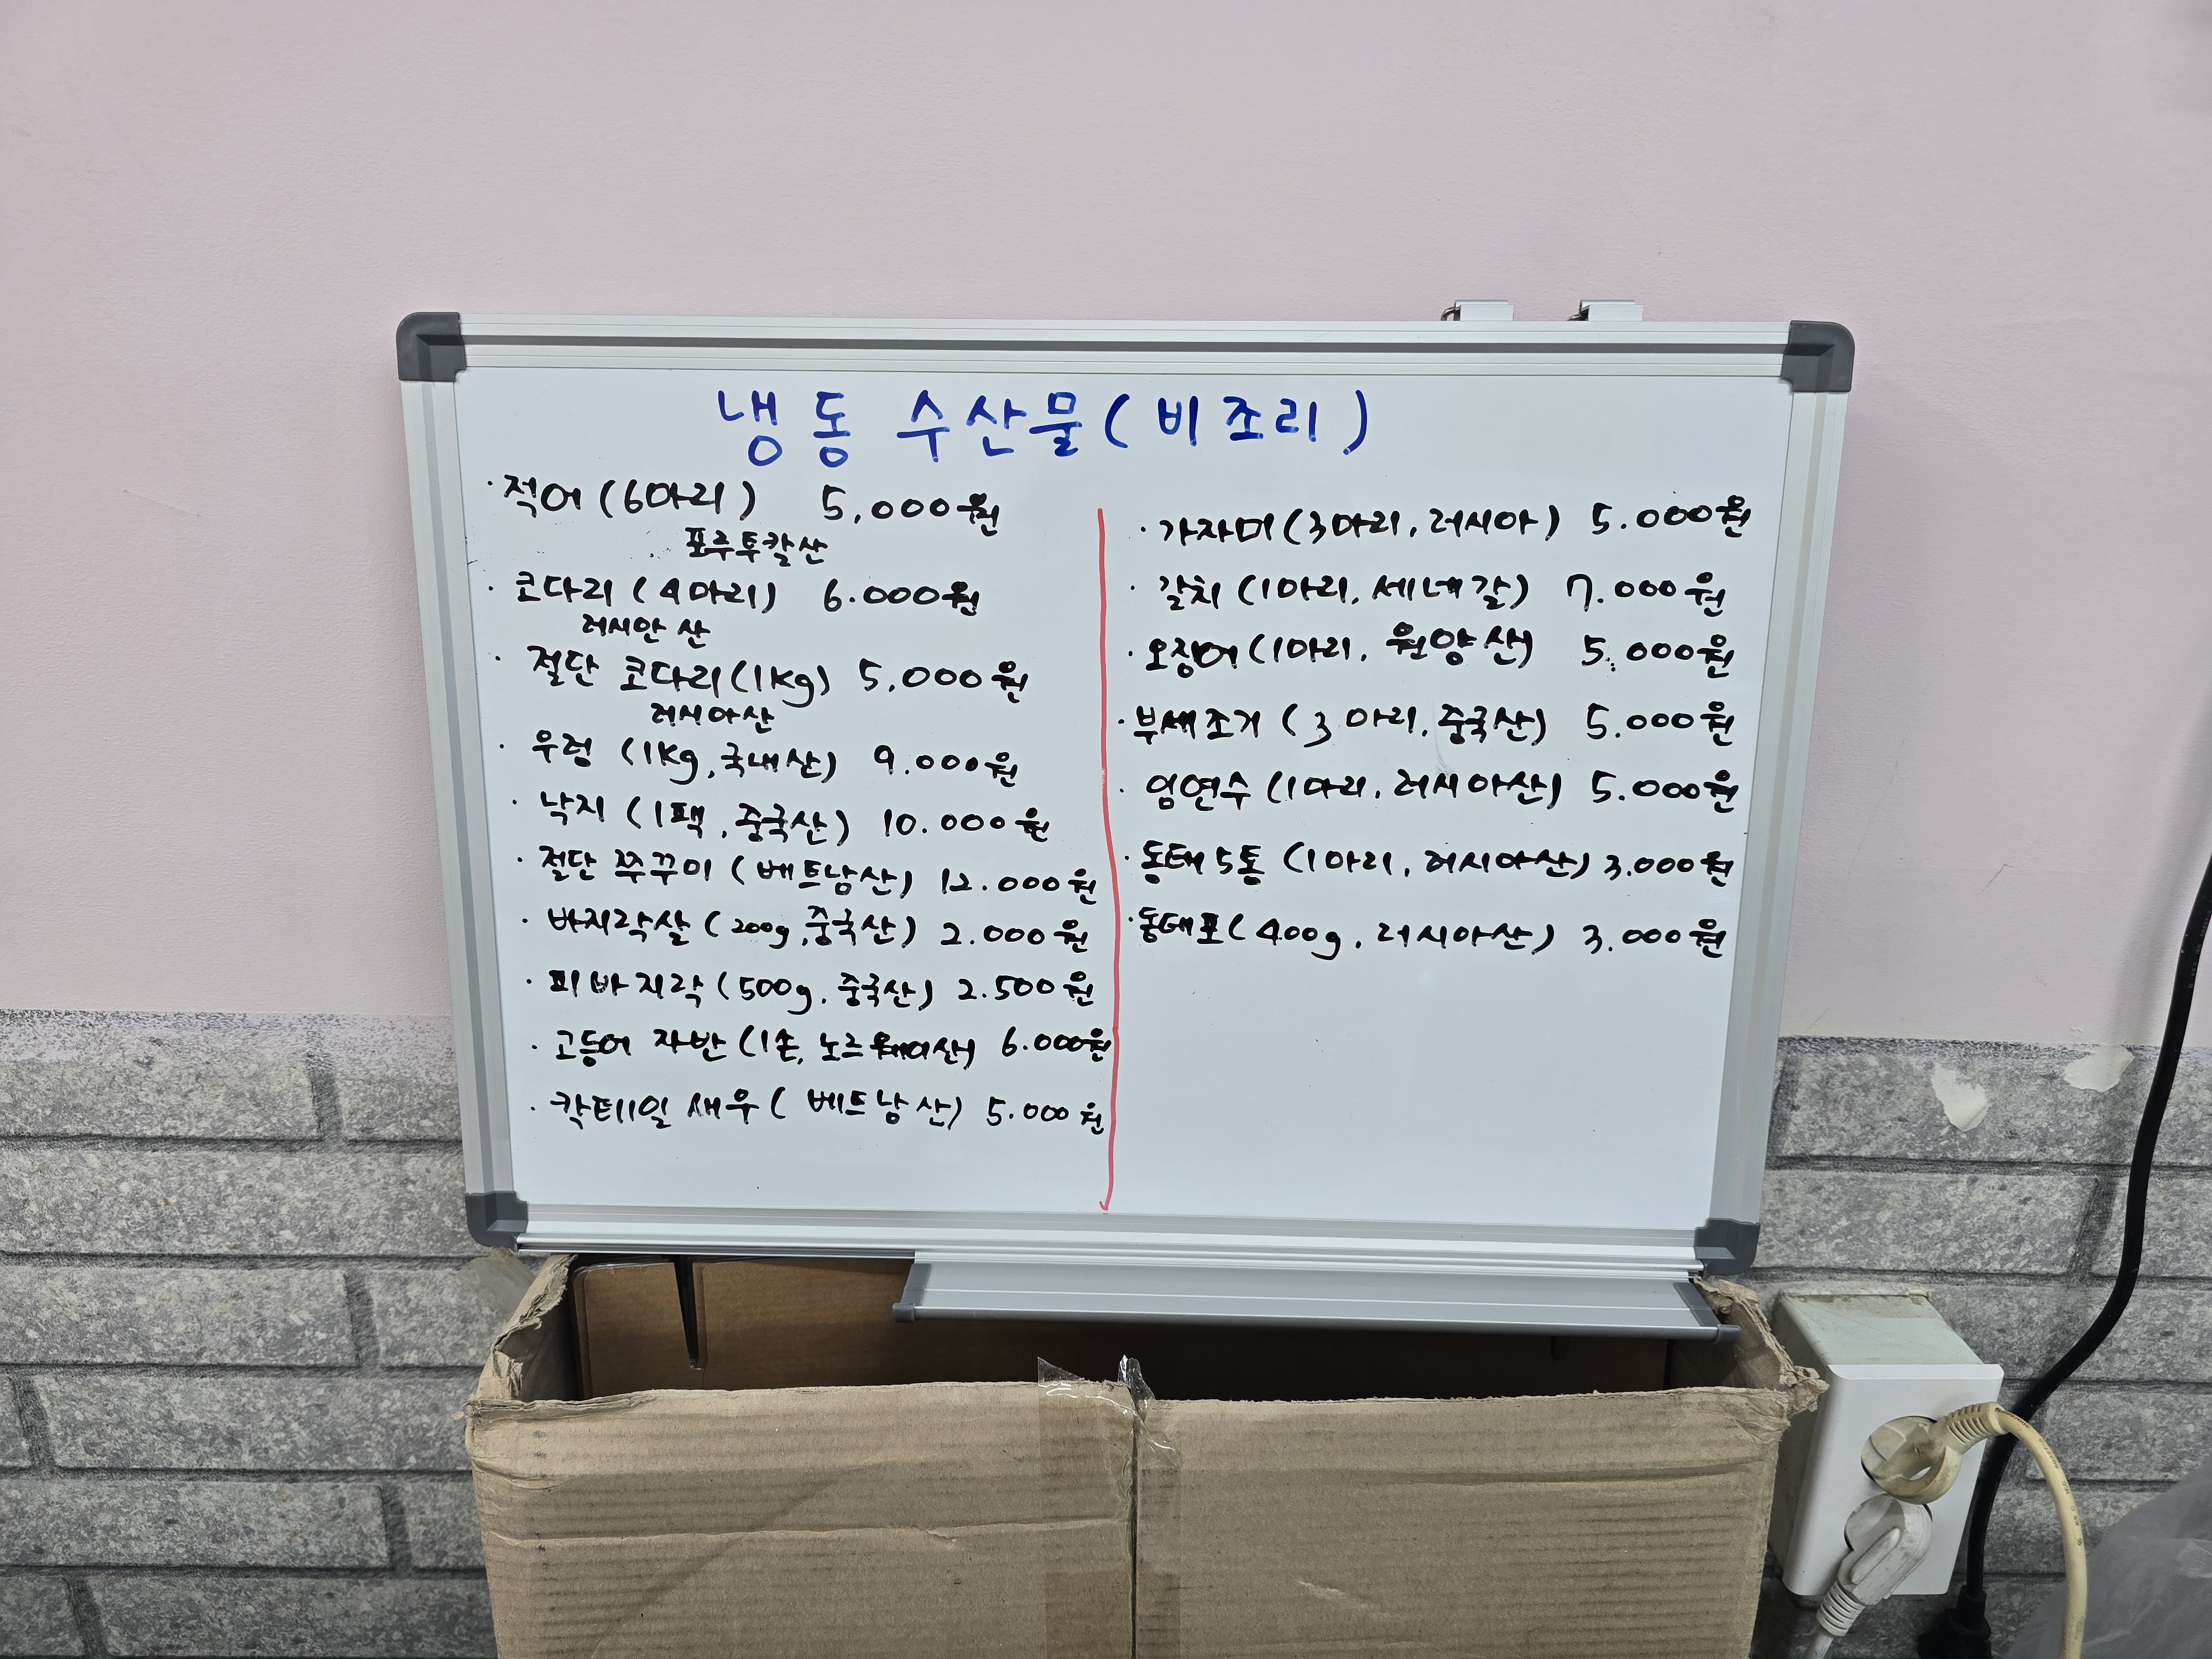 냉동 수산물(비조리)
· 적어(6마리) 5,000원
포루투칼산
· 코다리(4마리) 6.000원
러시안 산
· 절단 코다리(1kg) 5,000원
러시아산
· 우렁 (1kg, 국내산) 9.000원
· 낙지 (1팩, 중국산) 10.000원
· 절단 쭈꾸미 (베트남산) 12.000원
· 바지락살 (200g, 중국산) 2.000원
· 피바지락(500g, 중국산) 2.500원
· 고등어 자반 (1손, 노르웨이산) 6.000원
· 칵테일 새우( 베트남산) 5.000원
· 가자미(3마리, 러시아) 5.000원
· 갈치 (1마리, 세네갈) 7.000원
· 오징어(1마리, 원양산) 5.000원
· 부세조기 (3마리, 중국산) 5.000원
· 임연수 (1마리, 러시아산) 5.000원
· 동태5통 (1마리, 러시아산) 3.000원
· 동태포(400g, 러시아산) 3.000원